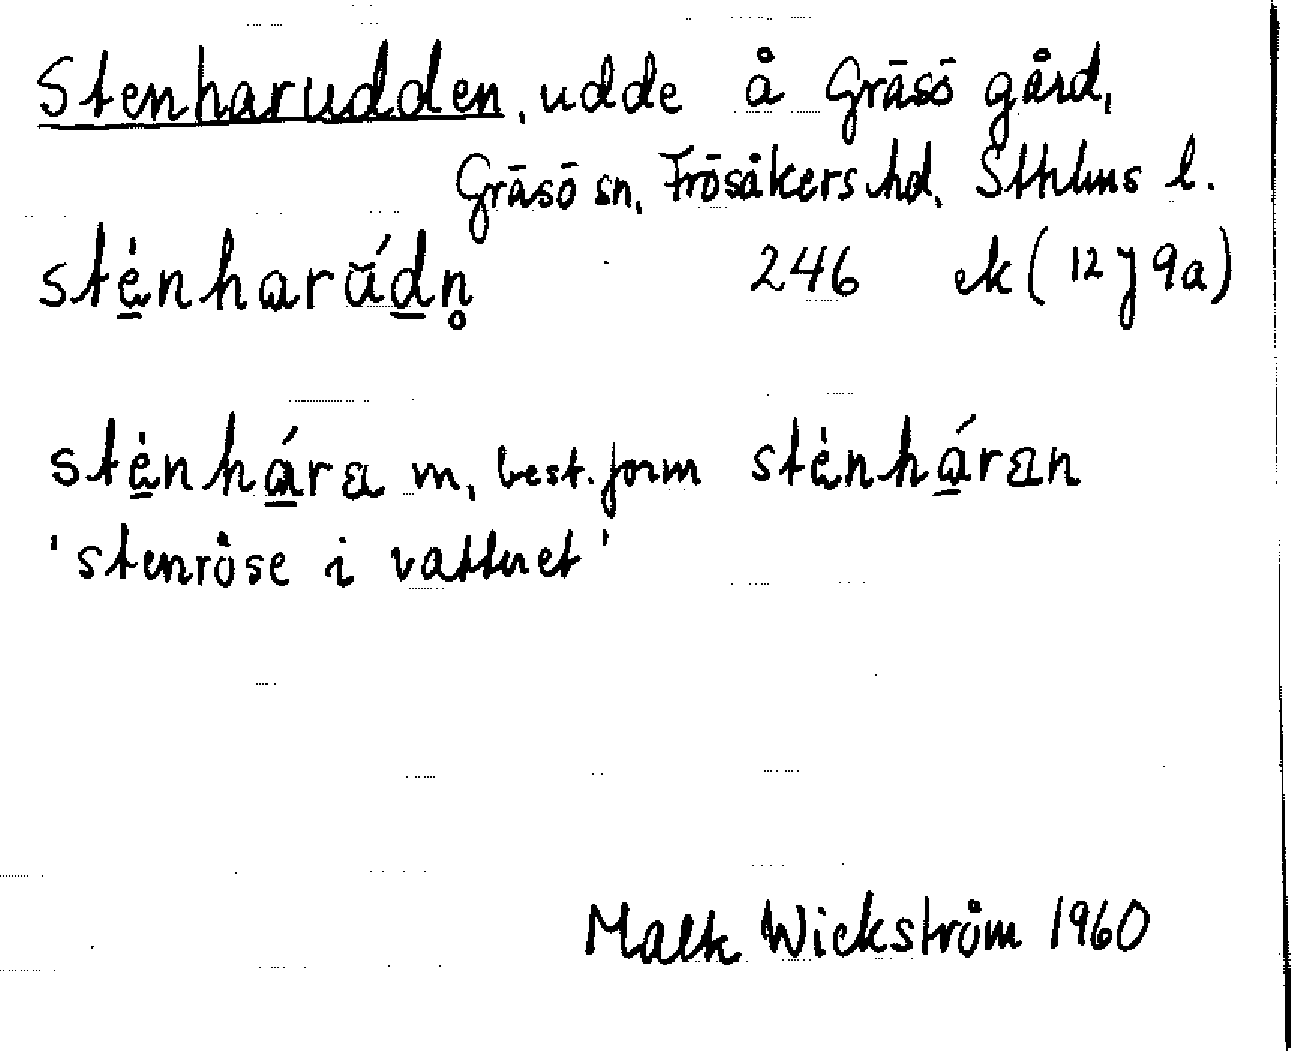 Stenharudden, udde å Gräsö gård,
Gräsö sn, Frösåkers hd, Sthlms l.
stènharádn̥ 246 ek (12 J 9a)
stènhára m, best. form stènháran
'stenröse i vattnet'
Wickström 1960